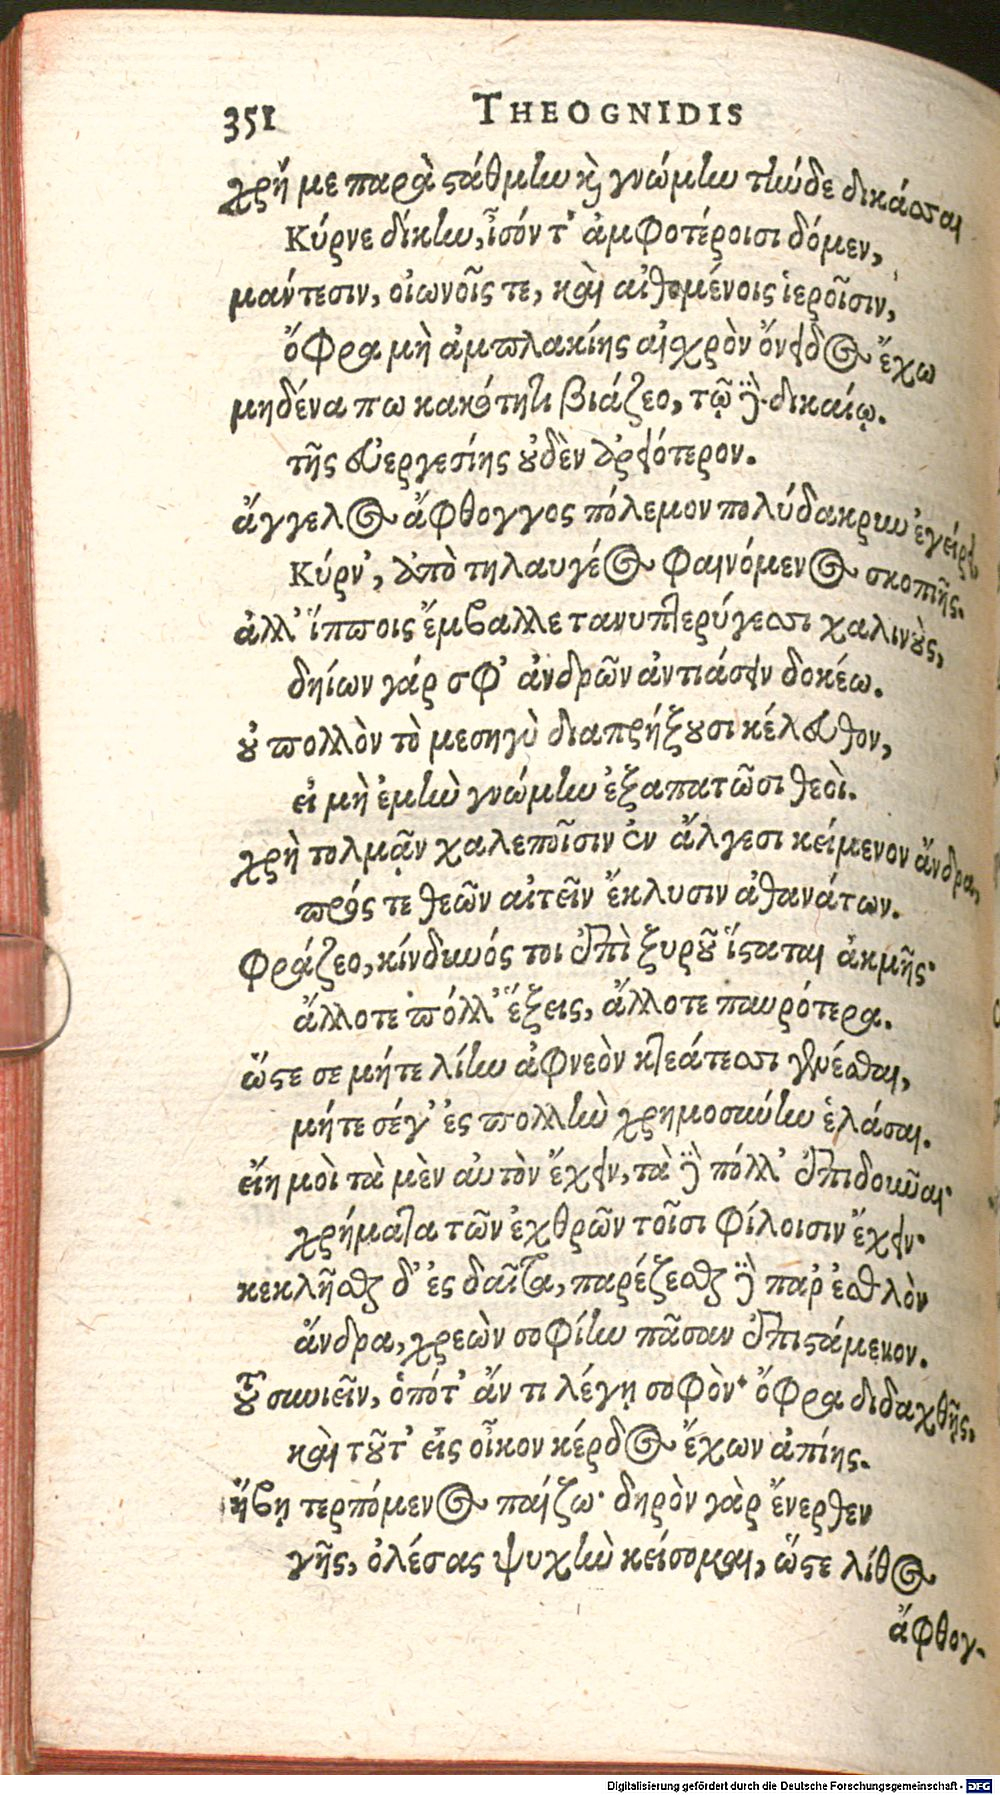 351 THEOGNIDIS
χρή με παρὰ στάθμην καὶ γνώμην τήνδε δικάσσαι
Κύρνε δίκην, ἶσόν τ' ἀμφοτέροισι δόμεν,
μάντεσιν, οἰωνοῖς τε, καὶ αἰθομένοις ἱεροῖσιν,
ὄφρα μὴ ἀμπλακίης αἰχρὸν ὄνειδος ἔχω
μηδένα πω κακότητι βιάζεο, τῷ δὲ δικαίῳ.
τῆς εὐεργεσίης οὐδὲν ἀρειότερον.
ἄγγελος ἄφθογγος πόλεμον πολύδακρυν ἐγείρει,
Κύρν', ἀπὸ τηλαυγέος φαινόμενος σκοπιῆς.
ἀλλ' ἵπποις ἔμβαλλε τανυπτερύγεσσι χαλινοὺς,
δηίων γάρ σφ' ἀνδρῶν ἀντιάσειν δοκέω.
οὐ πολλὸν τὸ μεσηγὺ διαπρήξουσι κέλευθον,
εἰ μὴ ἐμὴν γνώμην ἐξαπατῶσι θεοὶ.
χρὴ τολμᾷν χαλεποῖσιν ἐν ἄλγεσι κείμενον ἄνδρα,
πρός τε θεῶν αἰτεῖν ἔκλυσιν ἀθανάτων.
Φράζεο, κίνδυνός τοι ἐπὶ ξυροῦ ἵσταται ἀκμῆς·
ἄλλοτε πόλλ' ἕξεις, ἄλλοτε παυρότερα.
ὥστε σε μήτε λίην ἀφνεὸν κτεάτεσσι γενέσθαι,
μήτε σέγ' ἐς πολλὴν χρημοσύνην ἐλάσαι.
εἴη μοὶ τὰ μὲν αὐτὸν ἔχειν, τὰ δὲ πόλλ' ἐπιδοῦναι·
χρήματα τῶν ἐχθρῶν τοῖσι φίλοισιν ἔχειν·
κεκλῆσθαι δ' ἐς δαῖτα, παρέζεσθαι δὲ παρ' ἐσθλὸν
ἄνδρα, χρεὼν σοφίην πᾶσαν ἐπιστάμενον.
τοῦ συνιεῖν, ὁπότ' ἄν τι λέγῃ σοφὸν· ὄφρα διδαχθῇς,
καὶ τοῦτ' εἰς οἶκον κέρδος ἔχων ἀπίης.
ἥβῃ τερπόμενος παίζω· δηρὸν γὰρ ἔνερθεν
γῆς, ὀλέσας ψυχὴν κείσομαι, ὥστε λίθος
ἄφθογ-
Digitalisierung gefördert durch die Deutsche Forschungsgemeinschaft - DFG